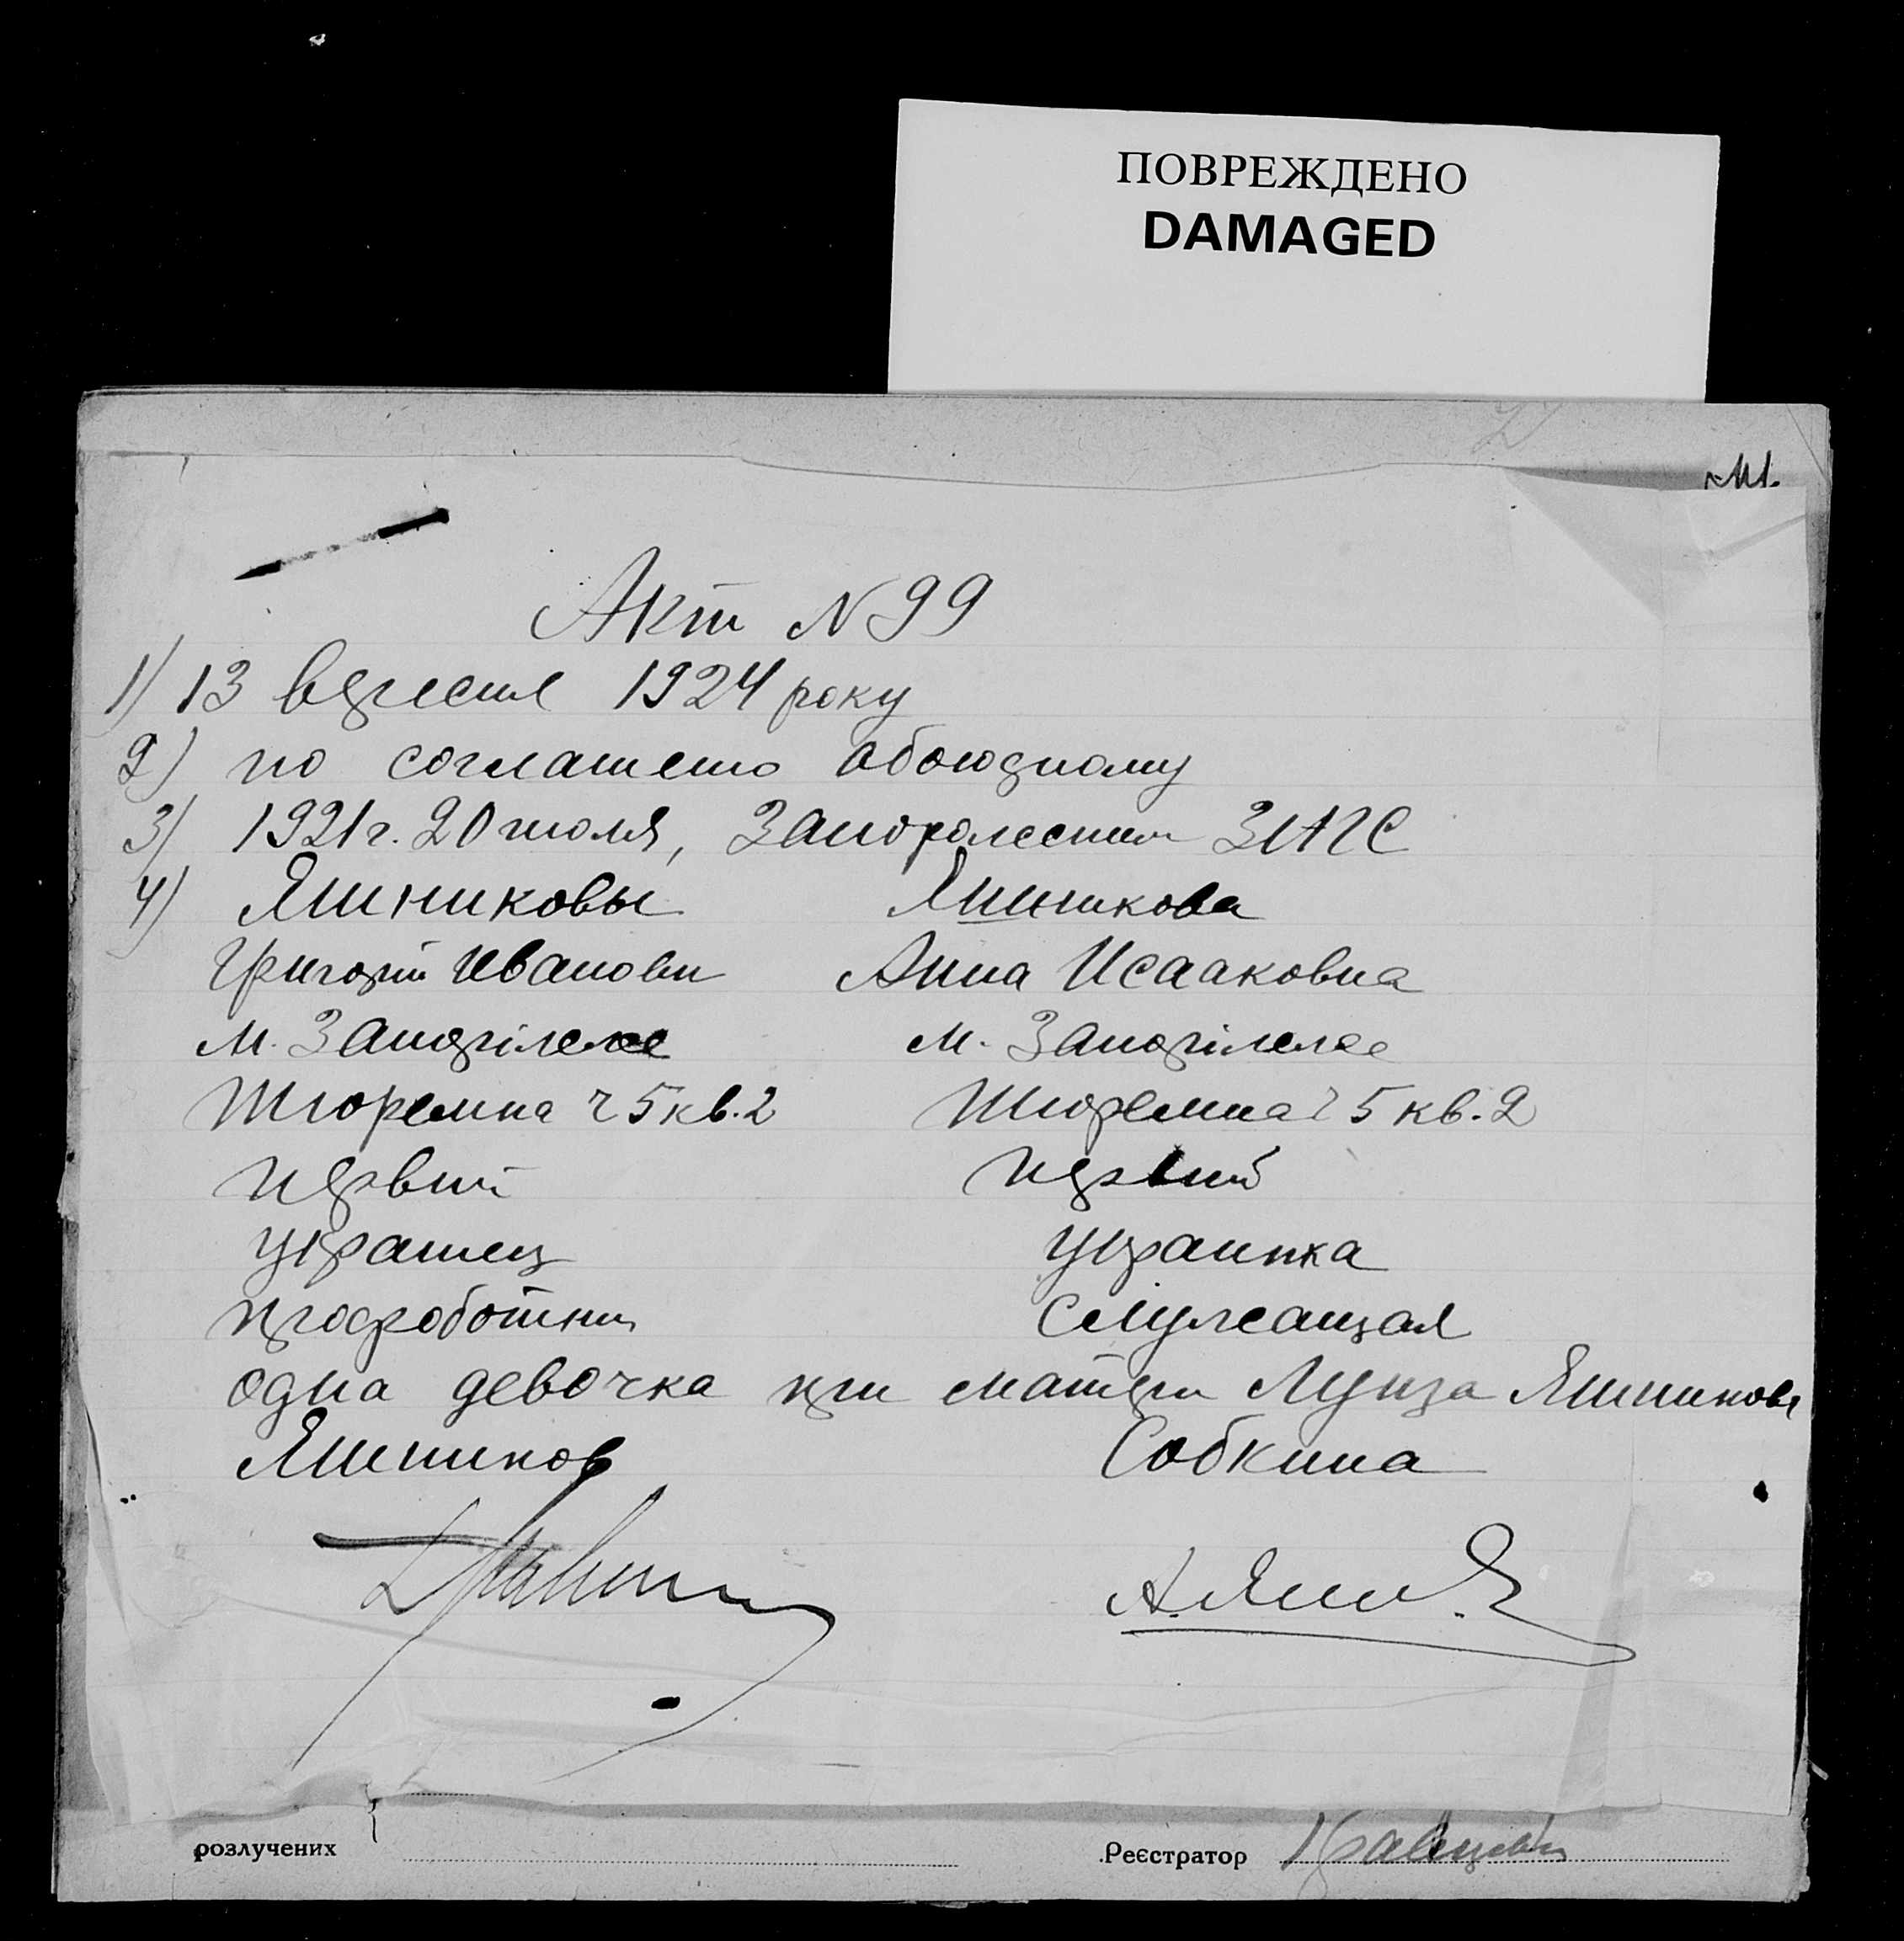 ПОВРЕЖДЕНО
DAMAGED
Акт N 99
1) 13 вересня 1924 року
2) по соглашению обоюдному
3) 1921 г. 20 июля, Запорожским ЗАГС
4) Яшниковы Яшникова
Григорий Иванови Анна Исааковна
м. Запоріжже м. Запоріжже
Тюремна ч 5 кв. 2 Тюремна ч 5 кв. 2
первий первий
украинец украинка
чорнороботник Служащая
одна девочка при матери Луиза Яшникова
Яшников Собкина
А. Яш
розлучених
Реєстратор